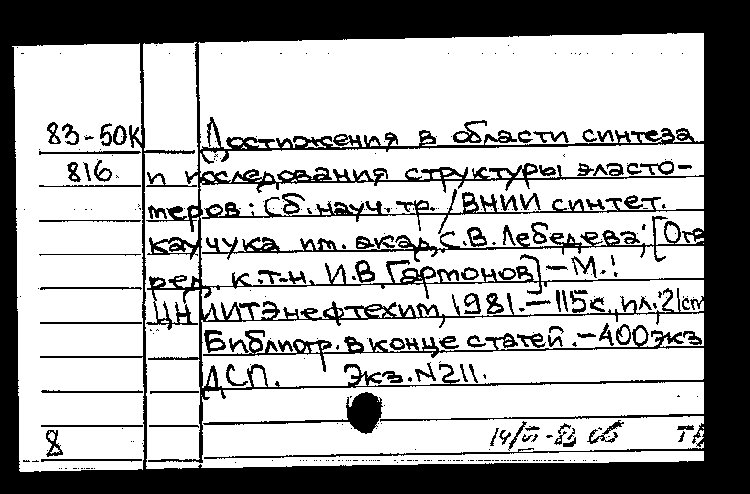 83-50К Достижения в области синтеза
816 и исследования структуры эласто-
меров: Сб. науч. тр. / ВНИИ синтет.
каучука им. акад. С.В. Лебедева; [Отв
ред. к.т.н. И.В. Гармонов]. - М.:
ЦНИИТЭнефтехим, 1981. - 115с., ил.; 21cm
Библиогр. в конце статей. - 400экз
ДСП. Экз. N211.
8 14/VI-83